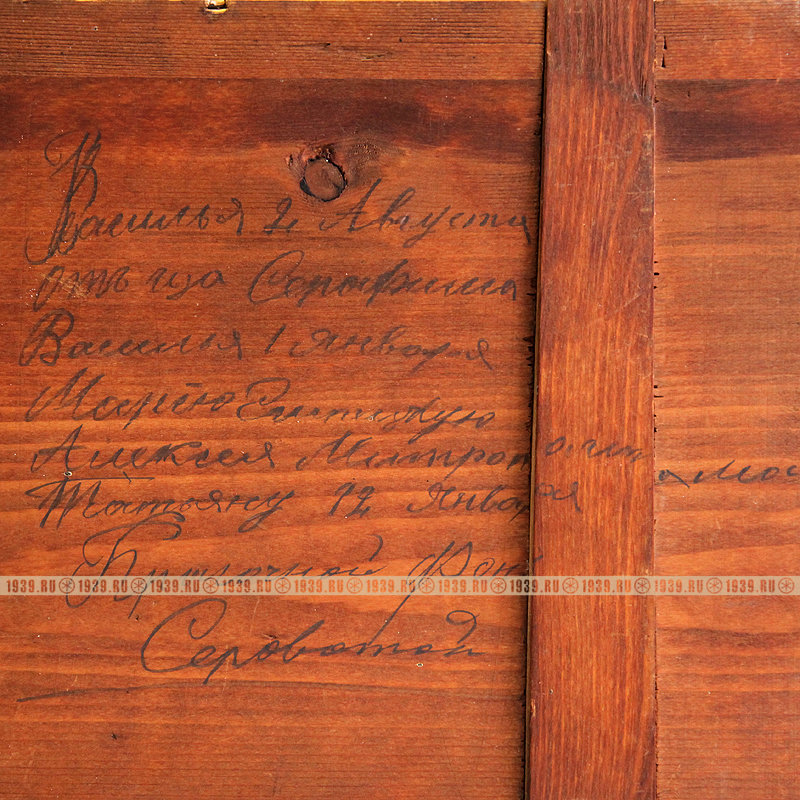 Василья 2 Августа
отъ Серафима
Василья 1 Января
Марію Египетскую
Алексея Митрополита Мос
Татьяну 12 Января
фон
1939.RU 1939.RU 1939.RU 1939.RU 1939.RU 1939.RU 1939.RU 1939.RU 1939.RU 1939.RU 1939.RU